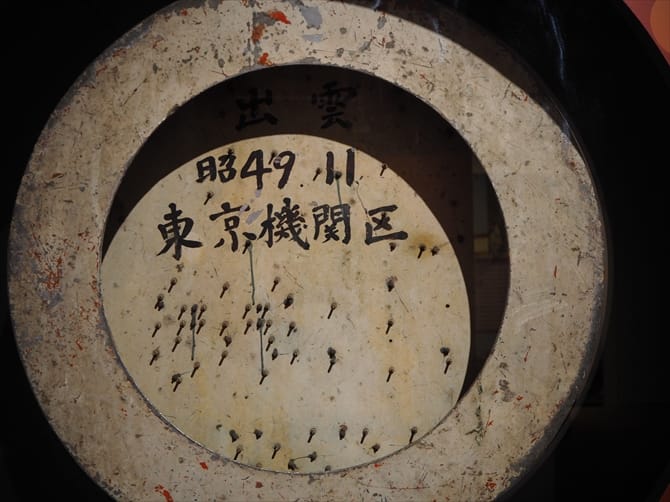 出雲
昭49.11
東京機関区